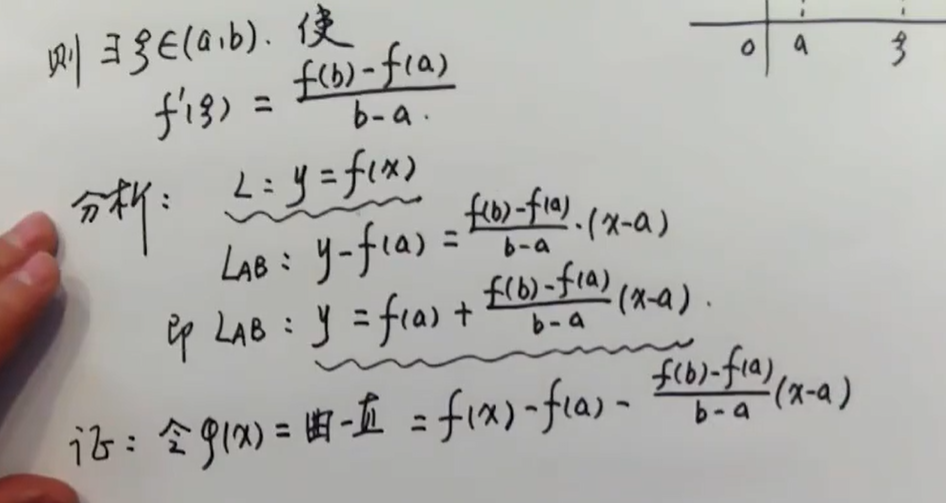 则 ∃ξ∈(a,b). 使
f'(ξ) = \frac{f(b)-f(a)}{b-a}.
o a ξ
分析: L: y=f(x)
L_{AB}: y-f(a) = \frac{f(b)-f(a)}{b-a}·(x-a)
即 L_{AB}: y = f(a) + \frac{f(b)-f(a)}{b-a}(x-a).
证: 令φ(x) = 曲-直 = f(x)-f(a)- \frac{f(b)-f(a)}{b-a}(x-a)